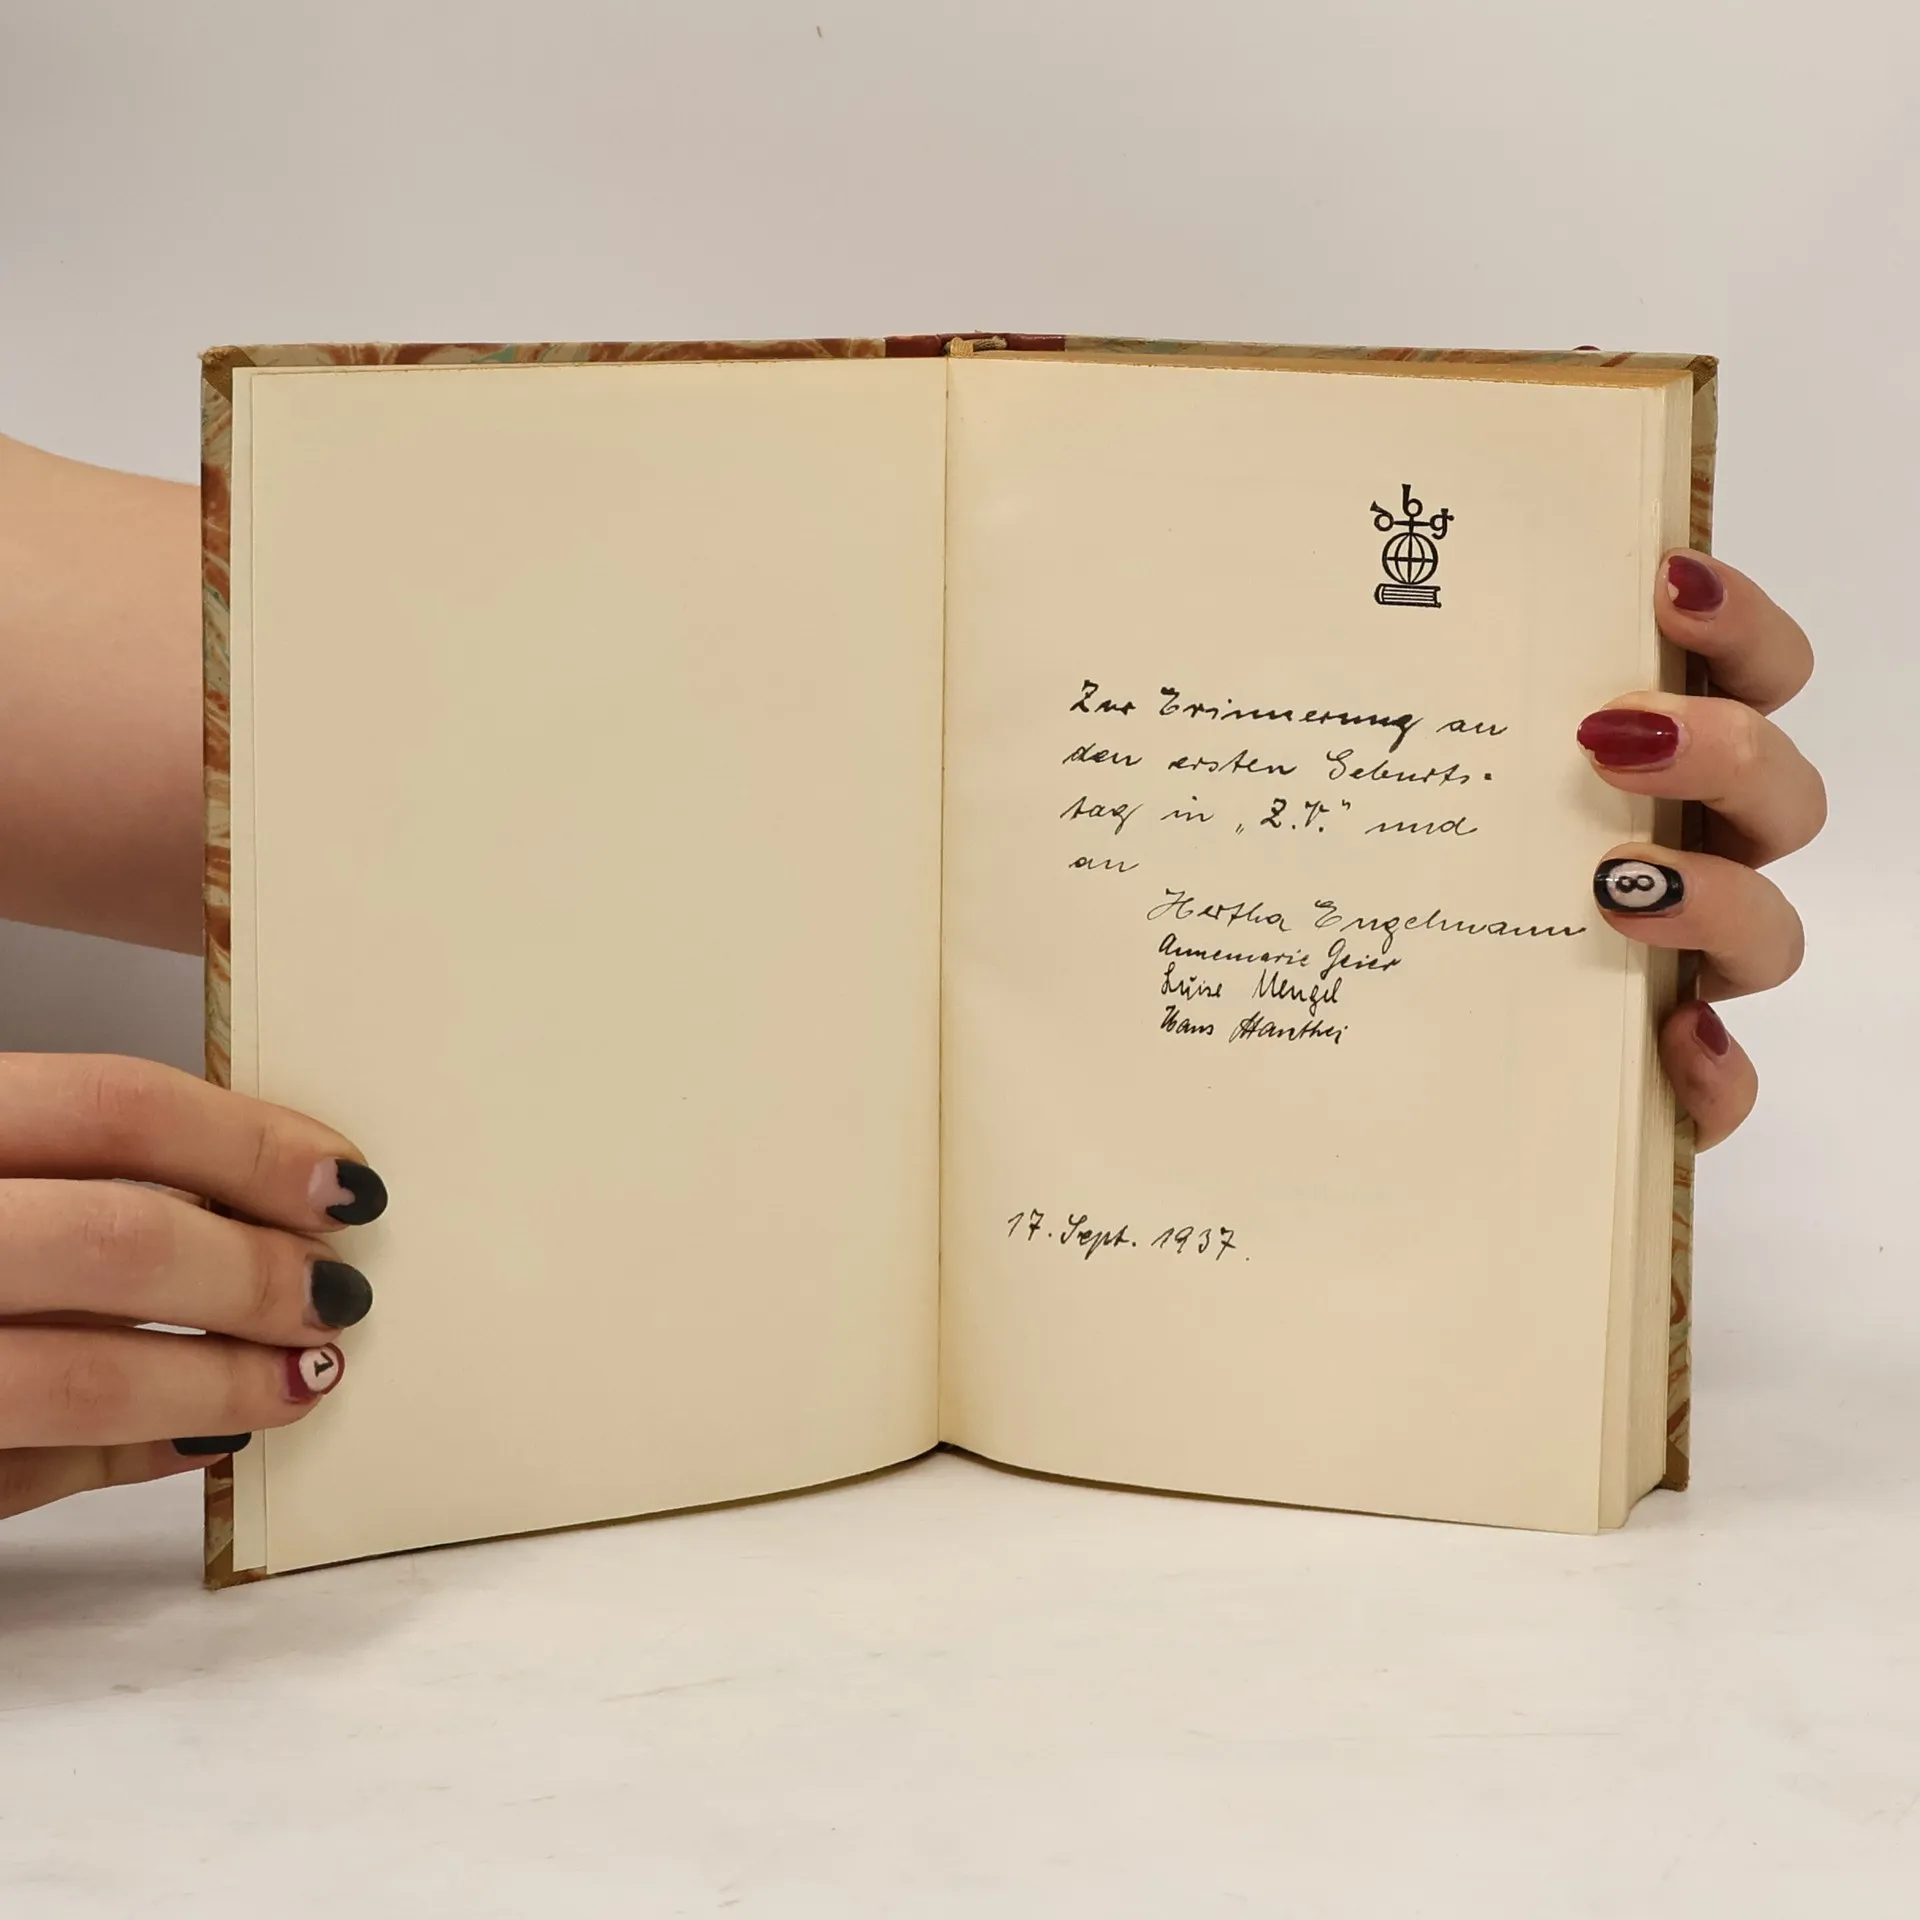 dbg
Zur Erinnerung an
den ersten Geburts-
tag in „Z.V.“ und
an
Hertha Engelmann
Annemarie Geier
Luise Mengel
Hans Manthei
17. Sept. 1937.
8
1